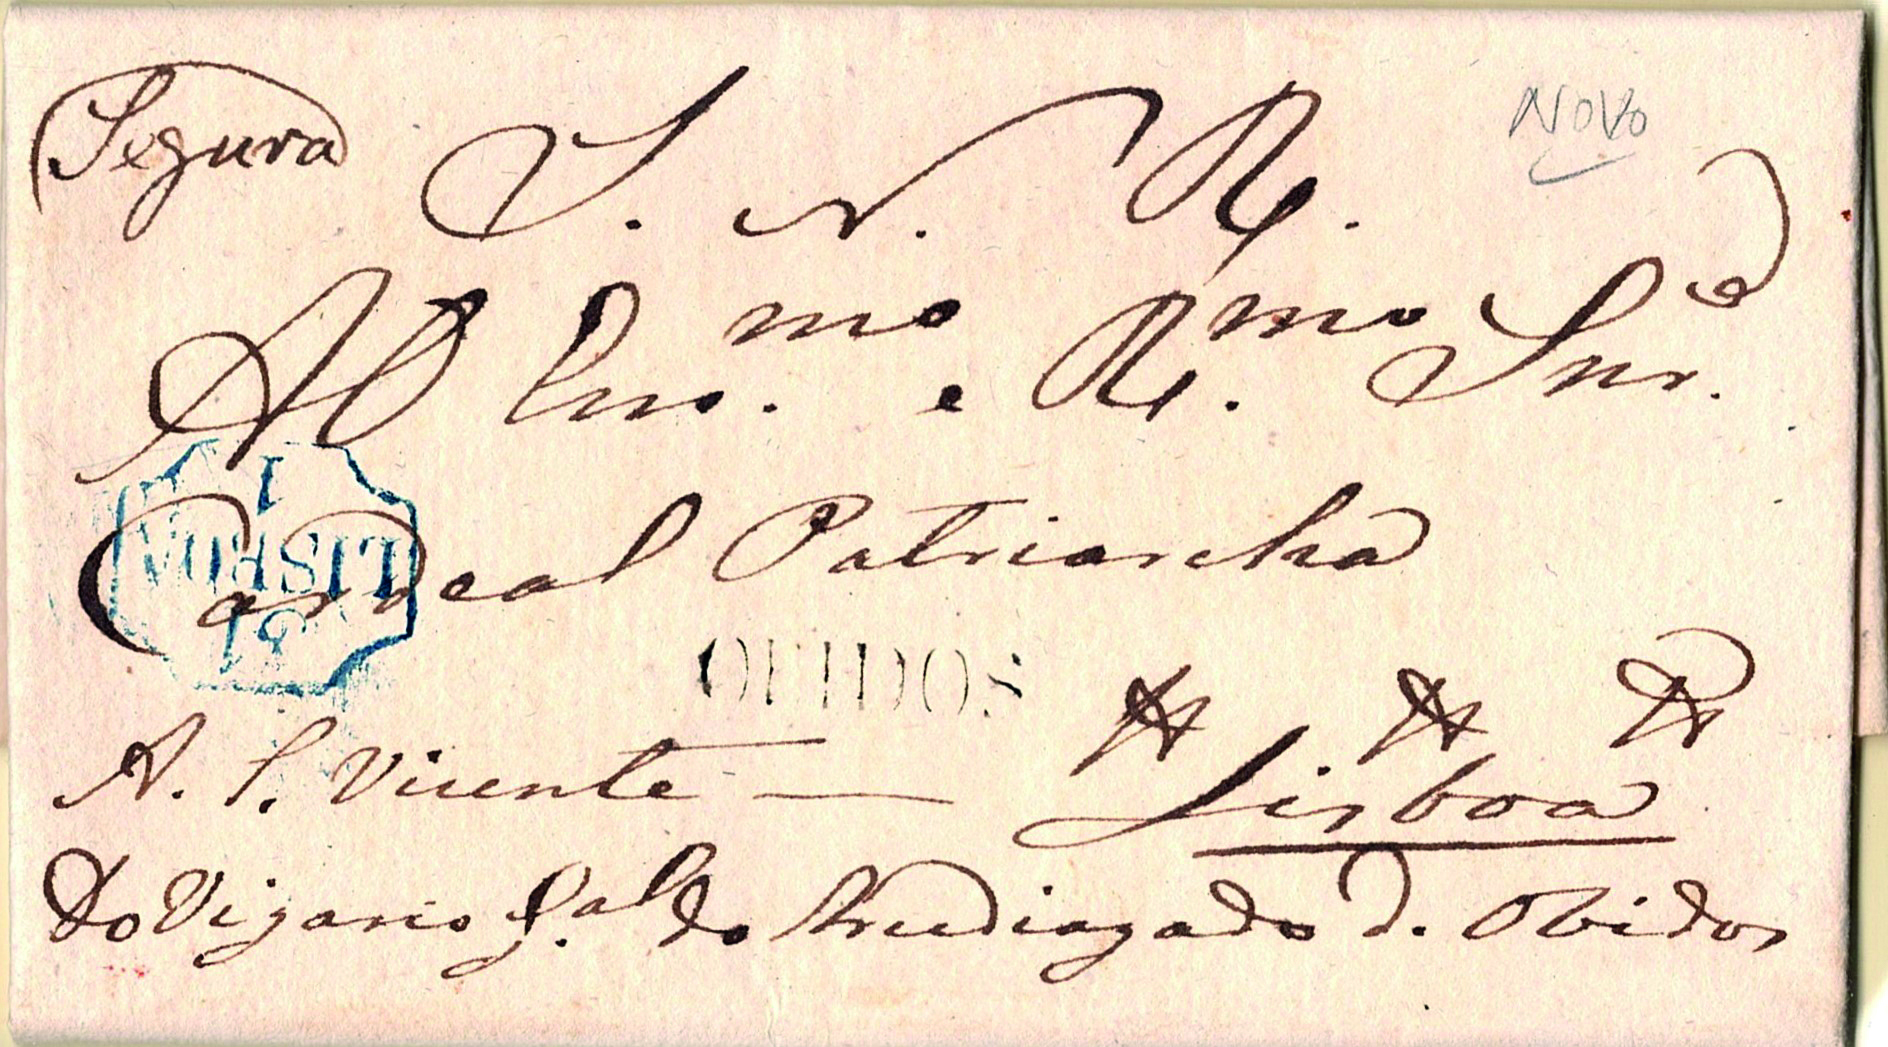 Segura
S. N. R.
NOVO
Ao Em.mo e R.mo Snr.
Cardeal Patriarcha
1
LISBOA
OBIDOS
A. S. Vicente — Lisboa
Do Vigario g.al do Arcediagado d. Obidos